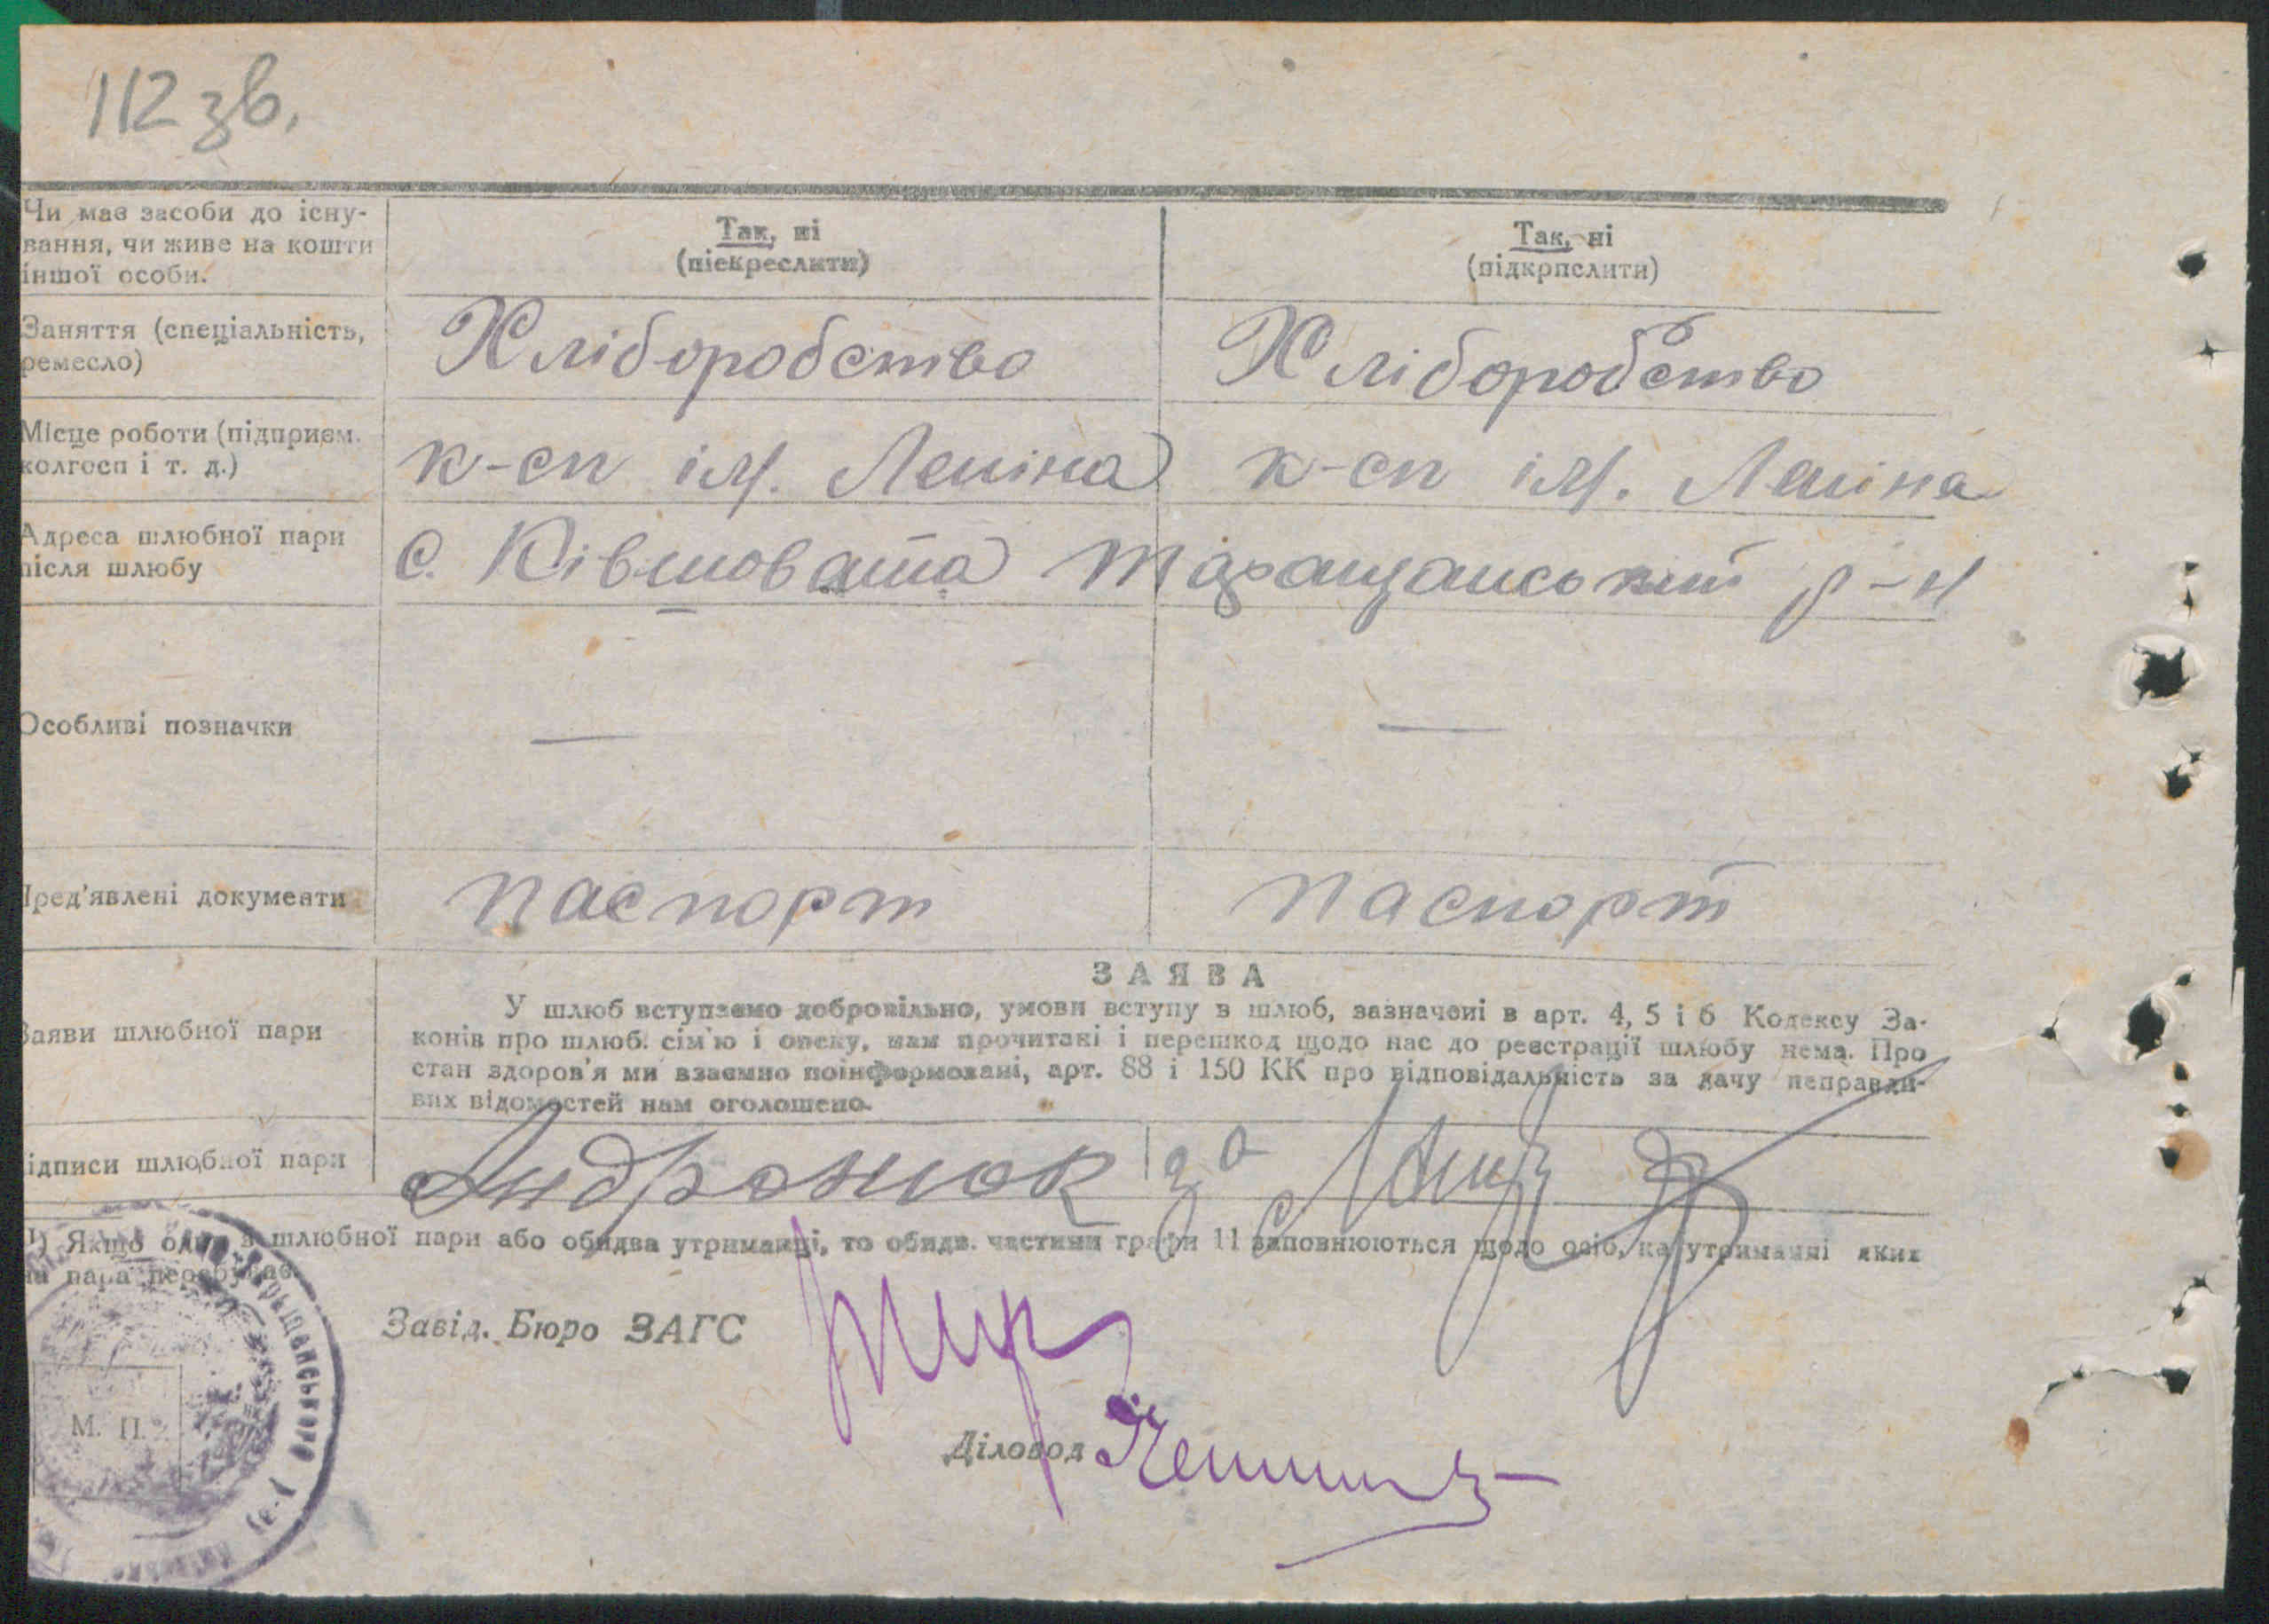 112 зв.
Чи має засоби до існу-
вання, чи живе на кошти
іншої особи.
Так, ні
(піекреслити)
Так, ні
(підкрпслити)
Заняття (спеціальність,
ремесло)
Хліборобство
Хліборобство
Місце роботи (підприєм.
колгосп і т. д.)
к-сп ім. Леніна
к-сп ім. Леніна
Адреса шлюбної пари
після шлюбу
С. Ківшовата Таращанський р-н
Особливі позначки
—
—
Пред'явлені документи
паспорт
паспорт
ЗАЯВА
Заяви шлюбної пари
У шлюб вступаємо добровільно, умови вступу в шлюб, зазначені в арт. 4, 5 і 6 Кодексу За-
конів про шлюб. сім'ю і опеку, нам прочитані і перешкод щодо нас до реєстрації шлюбу нема. Про
стан здоров'я ми взаємно поінформовані, арт. 88 і 150 КК про відповідальність за дачу неправди-
вих відомостей нам оголошено.
Підписи шлюбної пари
Андронюк
за
¹) Якщо один з шлюбної пари або обидва утриманці, то обидв. частини графи 11 заповнюються щодо осіб, на утриманні яких
ця пара перебуває.
Завід. Бюро ЗАГС
М. П.
Діловод